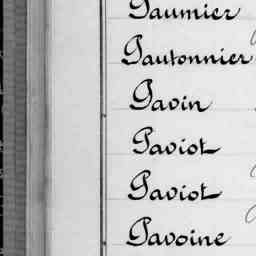 Paumier
Pautonnier
Pavin
Paviot
Paviot
Pavoine